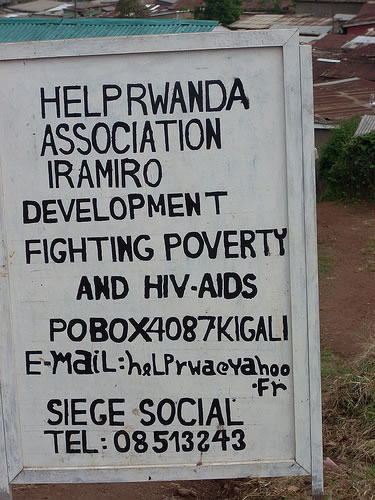 HELPRWANDA
ASSOCIATION
IRAMIRO
DEVELOPMENT
FIGHTING POVERTY
AND HIV-AIDS
POBOX4087KIGALI
E-MaiL:heLPrwa@yahoo
.Fr
SIEGE SOCIAL
TEL: 08513243